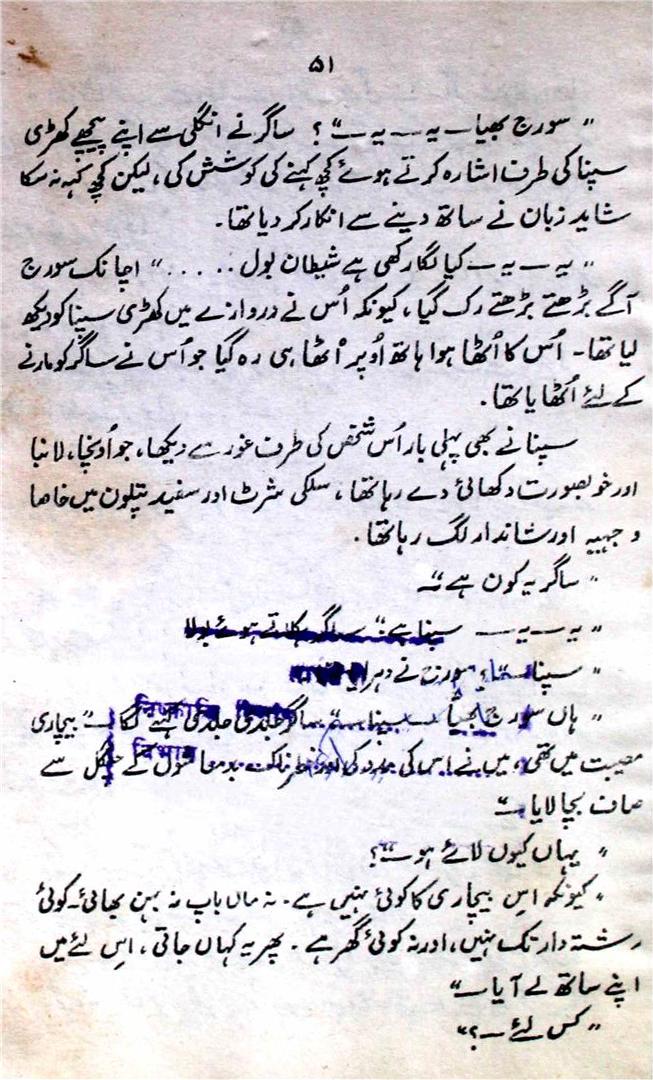 ۵۱
" سورج بھیا — یہ — یہ —" ؟ ساگر نے انگلی سے اپنے پیچھے کھڑی
سپنا کی طرف اشارہ کرتے ہوئے کچھ کہنے کی کوشش کی، لیکن کچھ کہہ نہ سکا
شاید زبان نے ساتھ دینے سے انکار کر دیا تھا۔
" یہ — یہ — کیا لگا رکھی ہے شیطان بول . . . . . " اچانک سورج
آگے بڑھتے بڑھتے رک گیا، کیونکہ اُس نے دروازے میں کھڑی سپنا کو دیکھ
لیا تھا۔ اُس کا اُٹھا ہوا ہاتھ اُوپر اُٹھا ہی رہ گیا جو اُس نے ساگر کو مارنے
کے لئے اُٹھایا تھا۔
سپنا نے بھی پہلی بار اُس شخص کی طرف غور سے دیکھا، جو اُونچا، لانبا
اور خوبصورت دکھائی دے رہا تھا، سلکی شرٹ اور سفید پتلون میں خاصا
وجہیہ اور شاندار لگ رہا تھا۔
" ساگر یہ کون ہے "؟
" یہ — یہ — سپنا ہے " ساگر ہکلاتے ہوئے بولا
" سپنا — " سورج نے دہرایا
" ہاں سورج بھیا — سپنا — " ساگر جلدی جلدی کہنے لگا — " بیچاری
مصیبت میں تھی، میں نے اس کی مدد کی اور خطرناک بدمعاشوں کے چنگل سے
صاف بچا لایا —"
" یہاں کیوں لائے ہو —"؟
" کیونکہ اِس بیچاری کا کوئی نہیں ہے۔ نہ ماں باپ نہ بہن بھائی۔ کوئی
رشتہ دار تک نہیں، اور نہ کوئی گھر ہے۔ پھر یہ کہاں جاتی، اِس لئے میں
اپنے ساتھ لے آیا —"
" کس لئے — ؟"